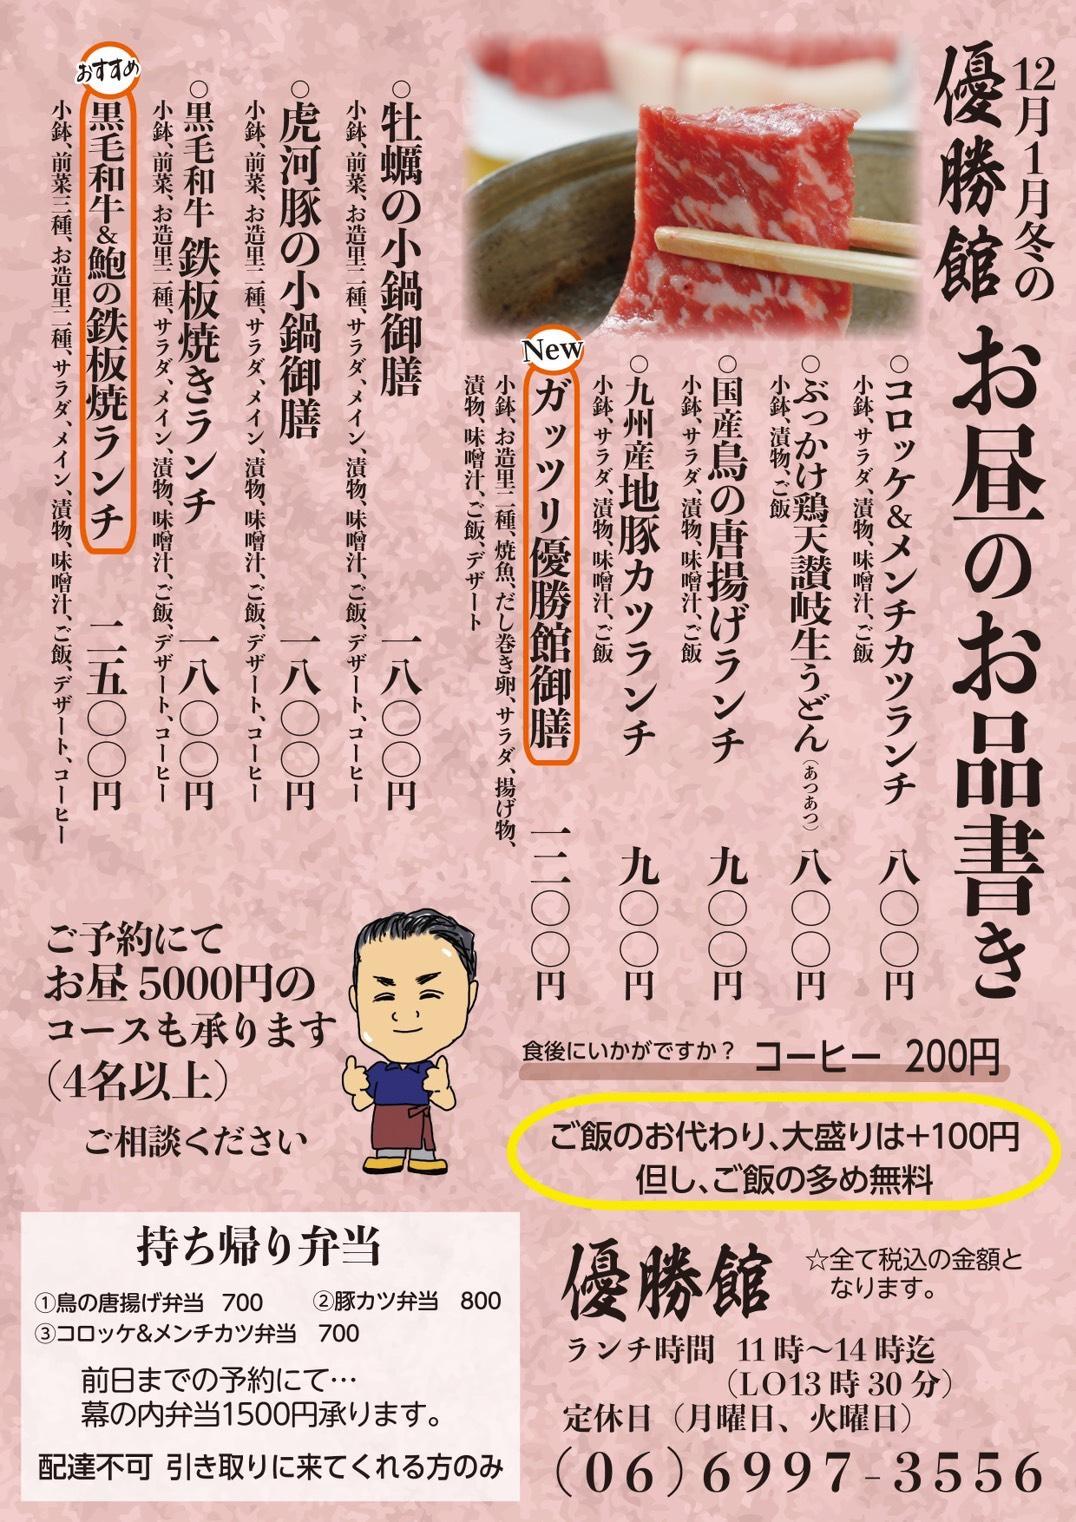 12月1月冬の
優勝館
お昼のお品書き
○コロッケ&メンチカツランチ 八〇〇円
小鉢、サラダ、漬物、味噌汁、ご飯
○ぶっかけ鶏天讃岐生うどん(あつあつ) 八〇〇円
小鉢、漬物、ご飯
○国産鳥の唐揚げランチ 九〇〇円
小鉢、サラダ、漬物、味噌汁、ご飯
○九州産地豚カツランチ 九〇〇円
小鉢、サラダ、漬物、味噌汁、ご飯
New
ガッツリ優勝館御膳 一二〇〇円
小鉢、お造里二種、焼魚、だし巻き卵、サラダ、揚げ物、
漬物、味噌汁、ご飯、デザート
○牡蠣の小鍋御膳 一八〇〇円
小鉢、前菜、お造里二種、サラダ、メイン、漬物、味噌汁、ご飯、デザート、コーヒー
○虎河豚の小鍋御膳 一八〇〇円
小鉢、前菜、お造里二種、サラダ、メイン、漬物、味噌汁、ご飯、デザート、コーヒー
○黒毛和牛 鉄板焼きランチ 一八〇〇円
小鉢、前菜、お造里二種、サラダ、メイン、漬物、味噌汁、ご飯、デザート、コーヒー
おすすめ
黒毛和牛&鮑の鉄板焼ランチ 二五〇〇円
小鉢、前菜三種、お造里二種、サラダ、メイン、漬物、味噌汁、ご飯、デザート、コーヒー
ご予約にて
お昼5000円の
コースも承ります
(4名以上)
ご相談ください
食後にいかがですか? コーヒー 200円
ご飯のお代わり、大盛りは+100円
但し、ご飯の多め無料
持ち帰り弁当
①鳥の唐揚げ弁当 700 ②豚カツ弁当 800
③コロッケ&メンチカツ弁当 700
前日までの予約にて…
幕の内弁当1500円承ります。
配達不可 引き取りに来てくれる方のみ
優勝館
☆全て税込の金額と
なります。
ランチ時間 11時〜14時迄
(LO13時30分)
定休日(月曜日、火曜日)
(06)6997-3556